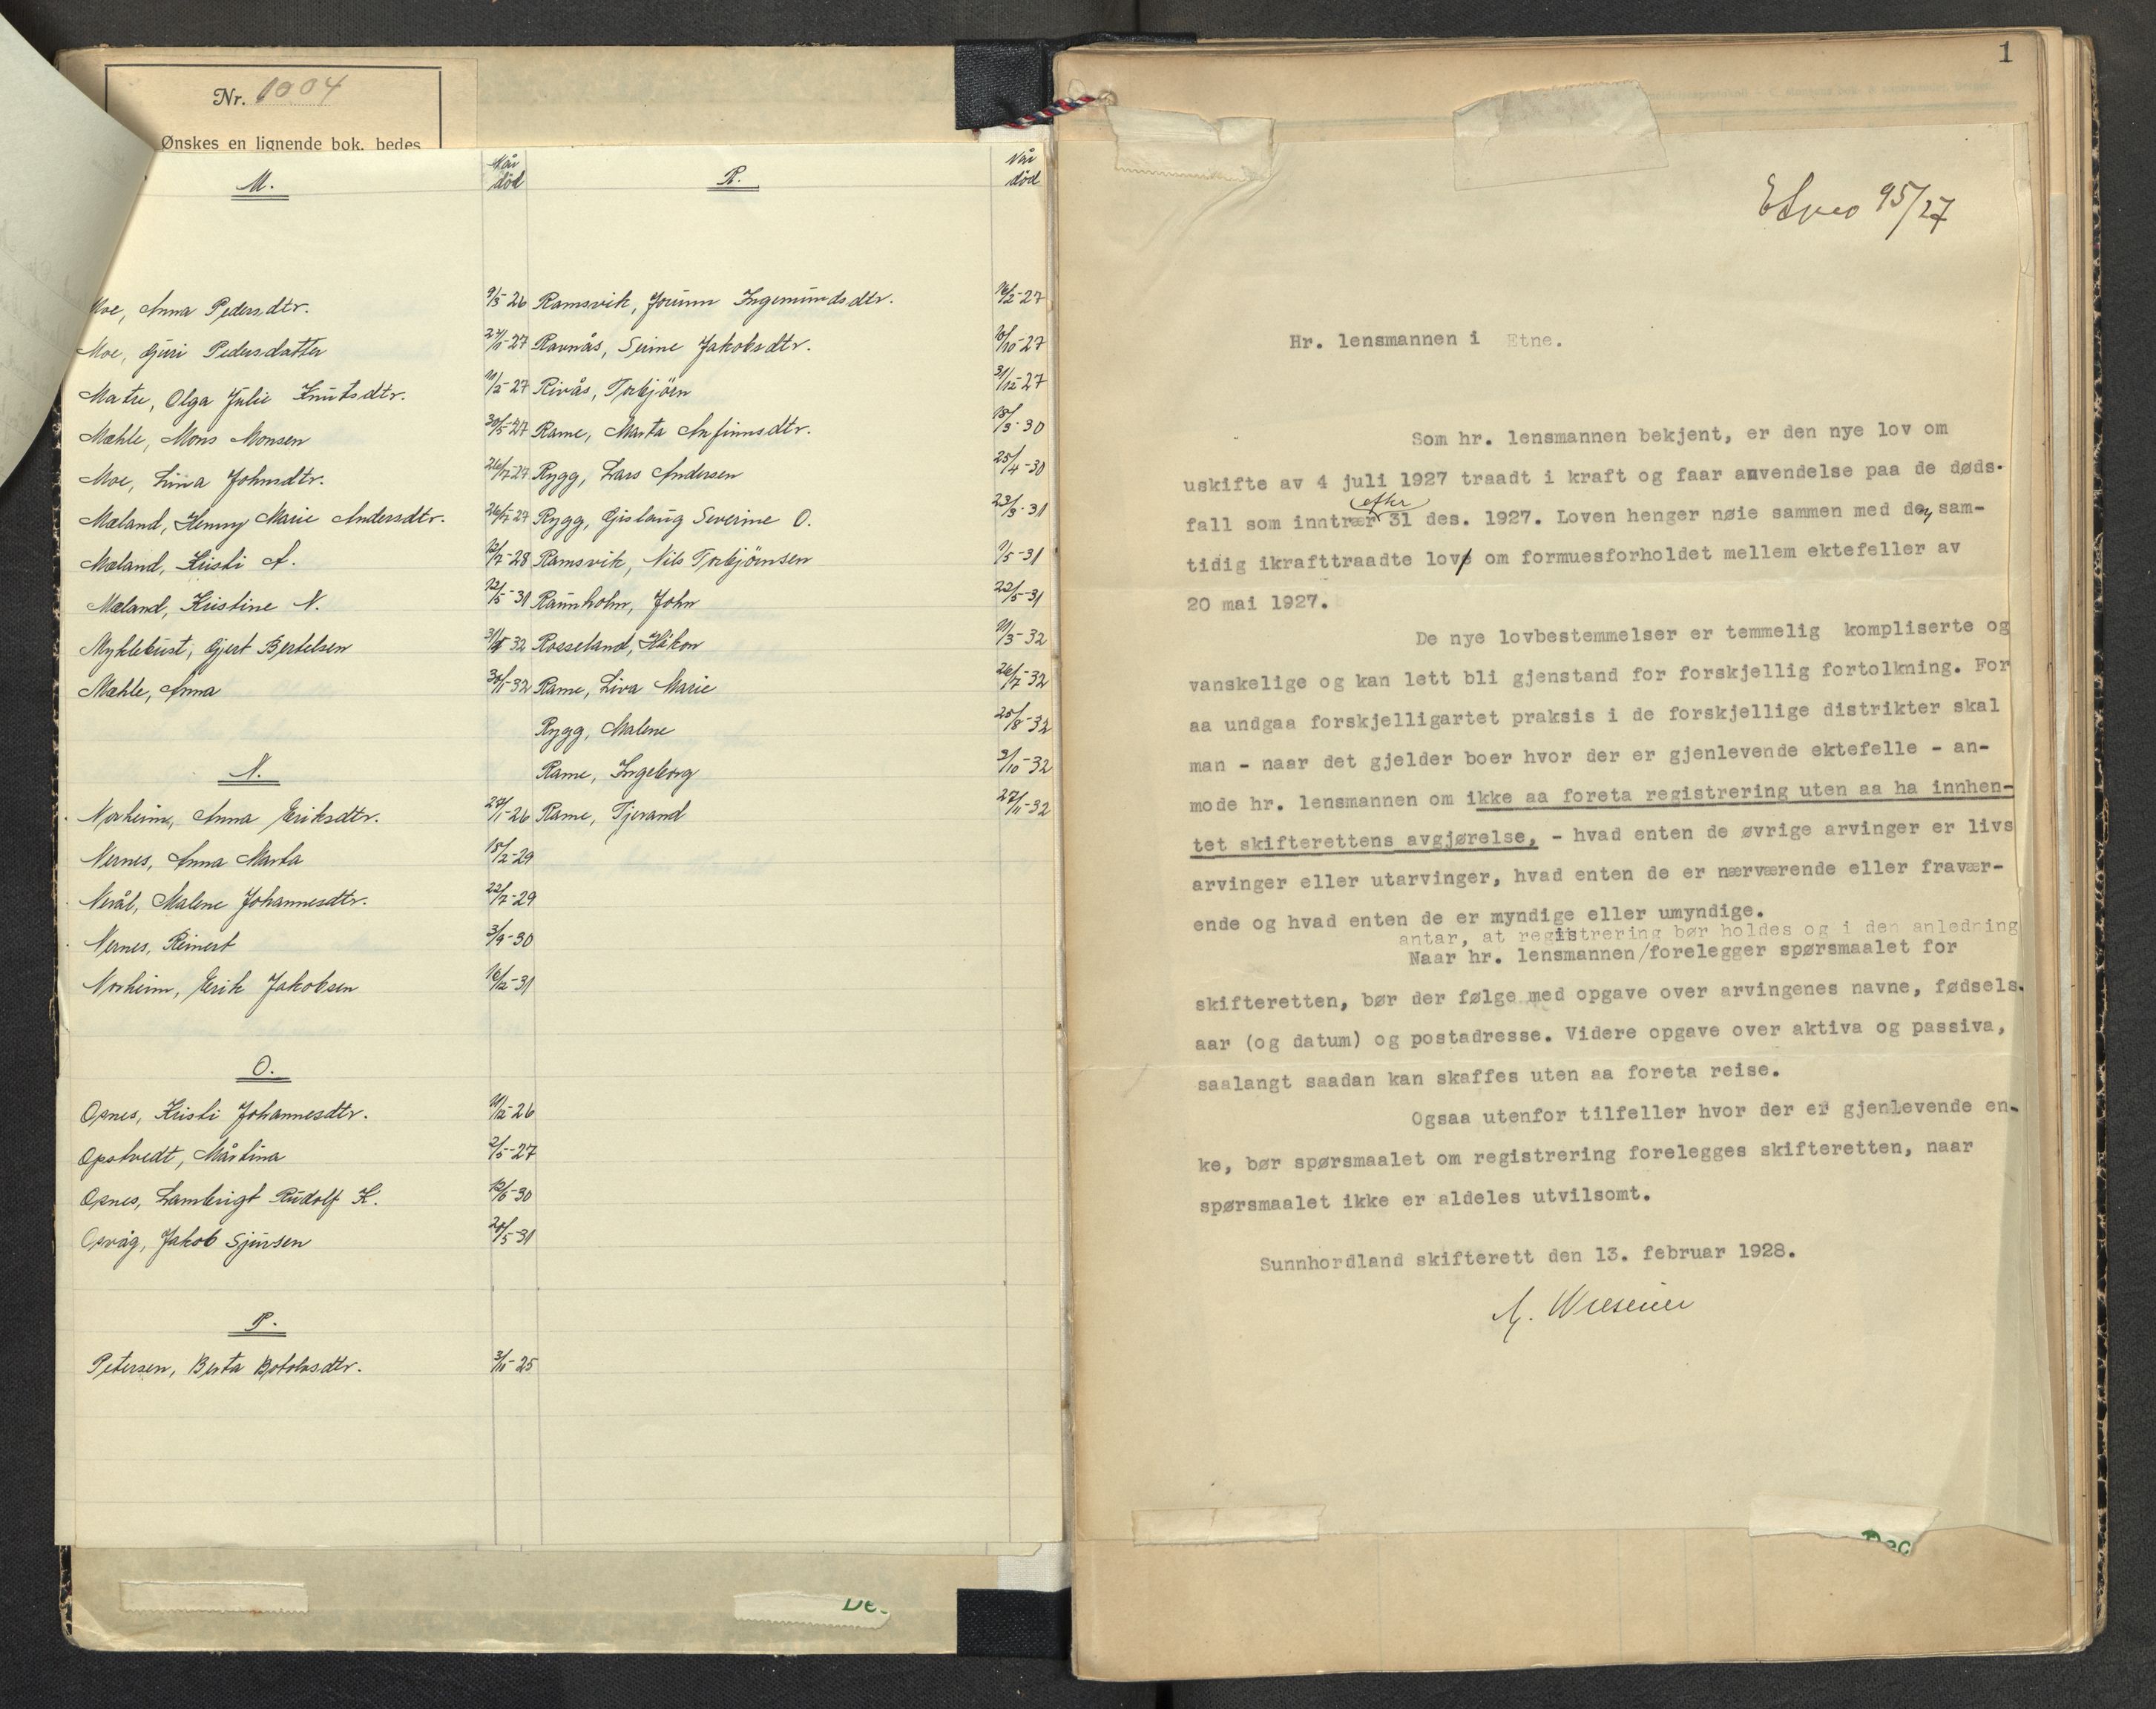 Nr. 1004
Ønskes en lignende bok, bedes
M.
Når
död
Moe, Anna Pedersdtr. 9/3-26
Moe, Guri Pedersdatter 27/1-27
Matre, Olga Julie Knutsdtr. 11/2-27
Mæhle, Mons Monsen 30/5-27
Moe, Lina Johnsdtr. 26/7-27
Mæland, Henny Marie Andersdtr. 26/7-27
Mæland, Kristi A. 12/7-28
Mæland, Kristine N. 22/5-31
Myklebust, Gjert Bertelsen 32
Mæhle, Anna 30/11-32
N.
Norheim, Anna Eriksdtr. 27/1-26
Nernes, Anna Marta 15/2-29
Nerål, Malene Johannesdtr. 22/7-29
Nernes, Reinert 3/9-30
Norheim, Erik Jakobsen 16/12-31
O.
Opnes, Kristi Johannesdtr. 11/12-26
Opstvedt, Mårtina 2/5-27
Opnes, Lambrigt Rudolf K. 12/6-30
Opvåg, Jakob Sjursen 28/5-31
P.
Petersen, Berta Botolvsdtr. 3/11-25
R.
Når
död
Ramsvik, Jorunn Ingemundsdtr. 16/2-27
Ravnås, Serine Jakobsdtr. 10/10-27
Rivås, Torbjörn 31/12-27
Rame, Marta Anfinnsdtr. 18/3-30
Rygg, Lars Andersen 25/4-30
Rygg, Gislaug Severine O. 23/3-31
Ramsvik, Nils Torbjörnsen 1/5-31
Raunholm, John 22/5-31
Rosseland, Håkon 11/3-32
Rame, Liva Marie 26/7-32
Rygg, Malene 25/8-32
Rame, Ingeborg 3/10-32
Rame, Tjerand 27/11-32
De
1
95/27
Hr. lensmannen i Etne.
Som hr. lensmannen bekjent, er den nye lov om
uskifte av 4 juli 1927 traadt i kraft og faar anvendelse paa de døds-
efter
fall som inntrær 31 des. 1927. Loven henger nøie sammen med den sam-
tidig ikrafttraadte lov om formuesforholdet mellem ektefeller av
20 mai 1927.
De nye lovbestemmelser er temmelig kompliserte og
vanskelige og kan lett bli gjenstand for forskjellig fortolkning. For
aa undgaa forskjelligartet praksis i de forskjellige distrikter skal
man - naar det gjelder boer hvor der er gjenlevende ektefelle - an-
mode hr. lensmannen om ikke aa foreta registrering uten aa ha innhen-
tet skifterettens avgjørelse, - hvad enten de øvrige arvinger er livs
arvinger eller utarvinger, hvad enten de er nærværende eller fravær-
ende og hvad enten de er myndige eller umyndige.
antar, at registrering bør holdes og i den anledning
Naar hr. lensmannen/forelegger spørsmaalet for
skifteretten, bør der følge med opgave over arvingenes navne, fødsels-
aar (og datum) og postadresse. Videre opgave over aktiva og passiva,
saalangt saadan kan skaffes uten aa foreta reise.
Ogsaa utenfor tilfeller hvor der er gjenlevende en-
ke, bør spørsmaalet om registrering forelegges skifteretten, naar
spørsmaalet ikke er aldeles utvilsomt.
Sunnhordland skifterett den 13. februar 1928.